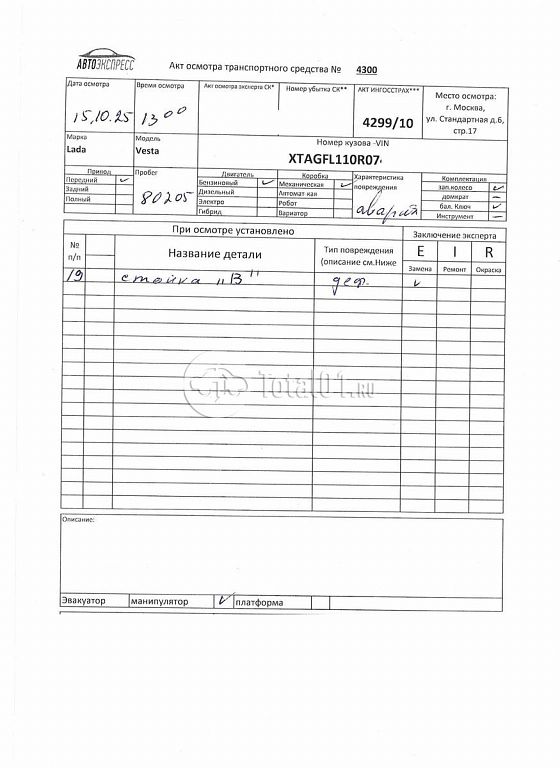 АВТОЭКСПРЕСС
Акт осмотра транспортного средства № 4300
Дата осмотра Время осмотра Акт осмотра эксперта СК* Номер убытка СК** АКТ ИНГОССТРАХ*** Место осмотра:
15,10.25 13 00 4299/10 г. Москва,
ул. Стандартная д.6,
стр.17
Марка Модель Номер кузова -VIN
Lada Vesta XTAGFL110R07
Привод Пробег Двигатель Коробка Характеристика Комплектация
Передний ✓ 80205 Бензиновый ✓ Механическая ✓ повреждения зап.колесо ✓
Задний Дизельный Автомат кая аварий домкрат –
Полный Электро Робот бал. Ключ ✓
Гибрид Вариатор Инструмент –
При осмотре установлено Заключение эксперта
№ п/п Название детали Тип повреждения (описание см.Ниже E I R
Замена Ремонт Окраска
19 стойка "В" деф. ✓
Total01.RU
Описание:
Эвакуатор манипулятор ✓ платформа